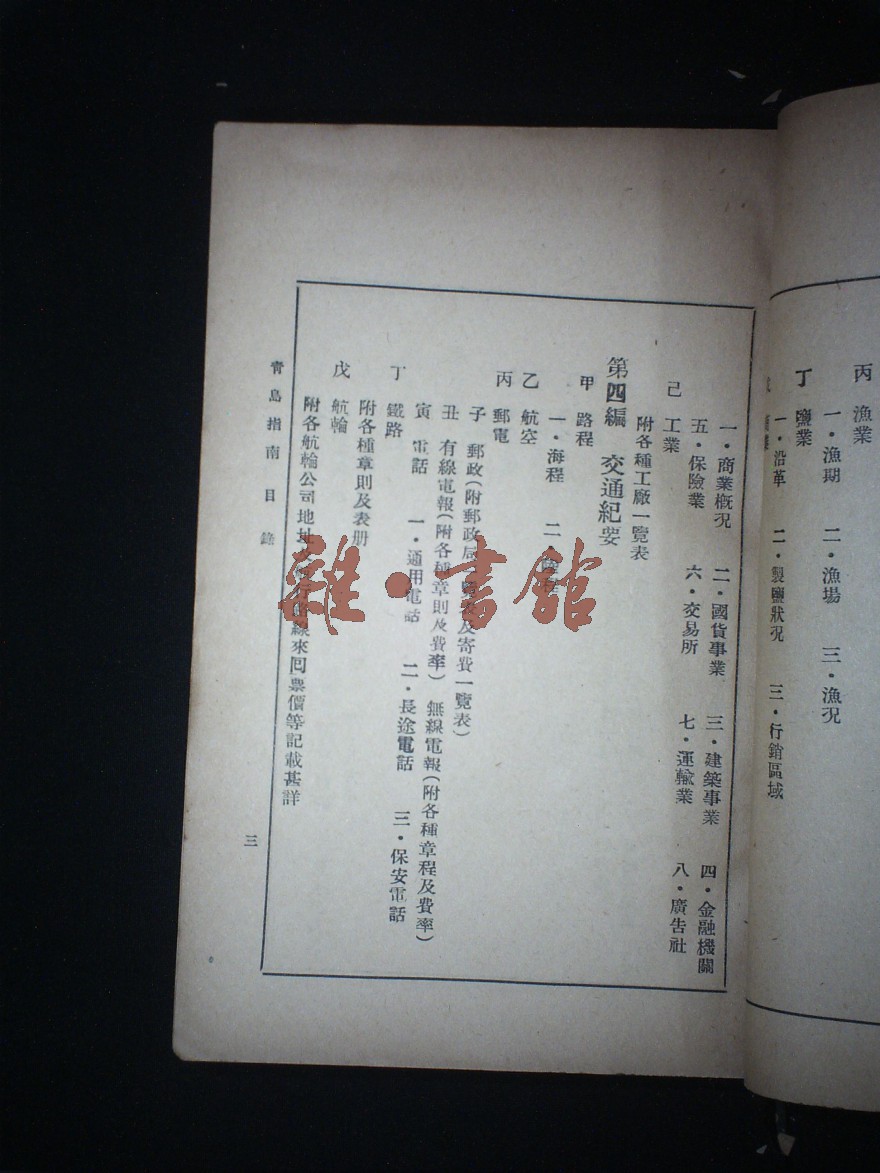 丙 漁業
一・漁期 二・漁場 三・漁況
丁 鹽業
一・沿革 二・製鹽狀況 三・行銷區域
一・商業概況 二・國貨事業 三・建築事業 四・金融機關
五・保險業 六・交易所 七・運輸業 八・廣告社
己 工業
附各種工廠一覽表
第四編 交通紀要
甲 路程
一・海程 二・
乙 航空
丙 郵電
子 郵政(附郵政局一覽表及寄費一覽表)
丑 有線電報(附各種章則及費率) 無線電報(附各種章程及費率)
寅 電話 一・通用電話 二・長途電話 三・保安電話
丁 鐵路
附各種章則及表册
戊 航輪
附各航輪公司地址 行 線來回票價等記載甚詳
青島指南目錄
三
雜・書館